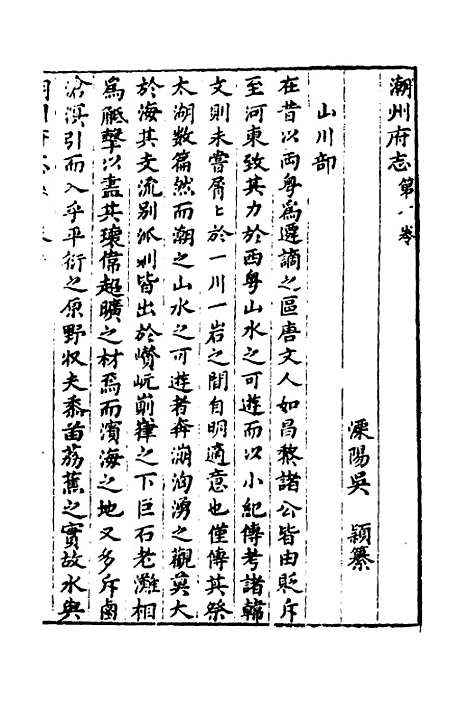 潮州府志第八卷
溧陽吳　穎纂
山川部
在昔以兩粵爲遷謫之區唐文人如昌黎諸公皆由貶斥
至河東致其力於西粵山水之可遊而以小紀傳考諸韓
文則未嘗屑匕於一川一岩之間自明適意也僅傳其祭
太湖數篇然而潮之山水之可遊者奔瀚洶湧之觀莫大
於海其支流别派則皆出於巑岏崱嵂之下巨石老灘相
爲觝擊以盡其瓌偉超曠之材焉而濱海之地又多斥鹵
滄溟引而入乎平衍之原野收夫黍苗荔蕉之實故水與